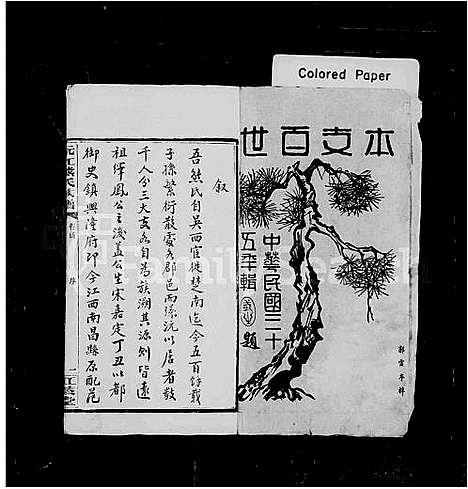 Colored Paper
本支百世
中華民國三十
五年輯
題
叙
吾熊氏自吴西宦徙楚南迄今五百餘載
子孫繁衍散處各郡邑而環沅以居者數
千人分三大支各自為族溯其源则皆遠
祖繹鳳公之後盖公生宋嘉定丁丑以都
御史鎮興隆府即今江西南昌縣原配范
沅江熊氏族譜
序